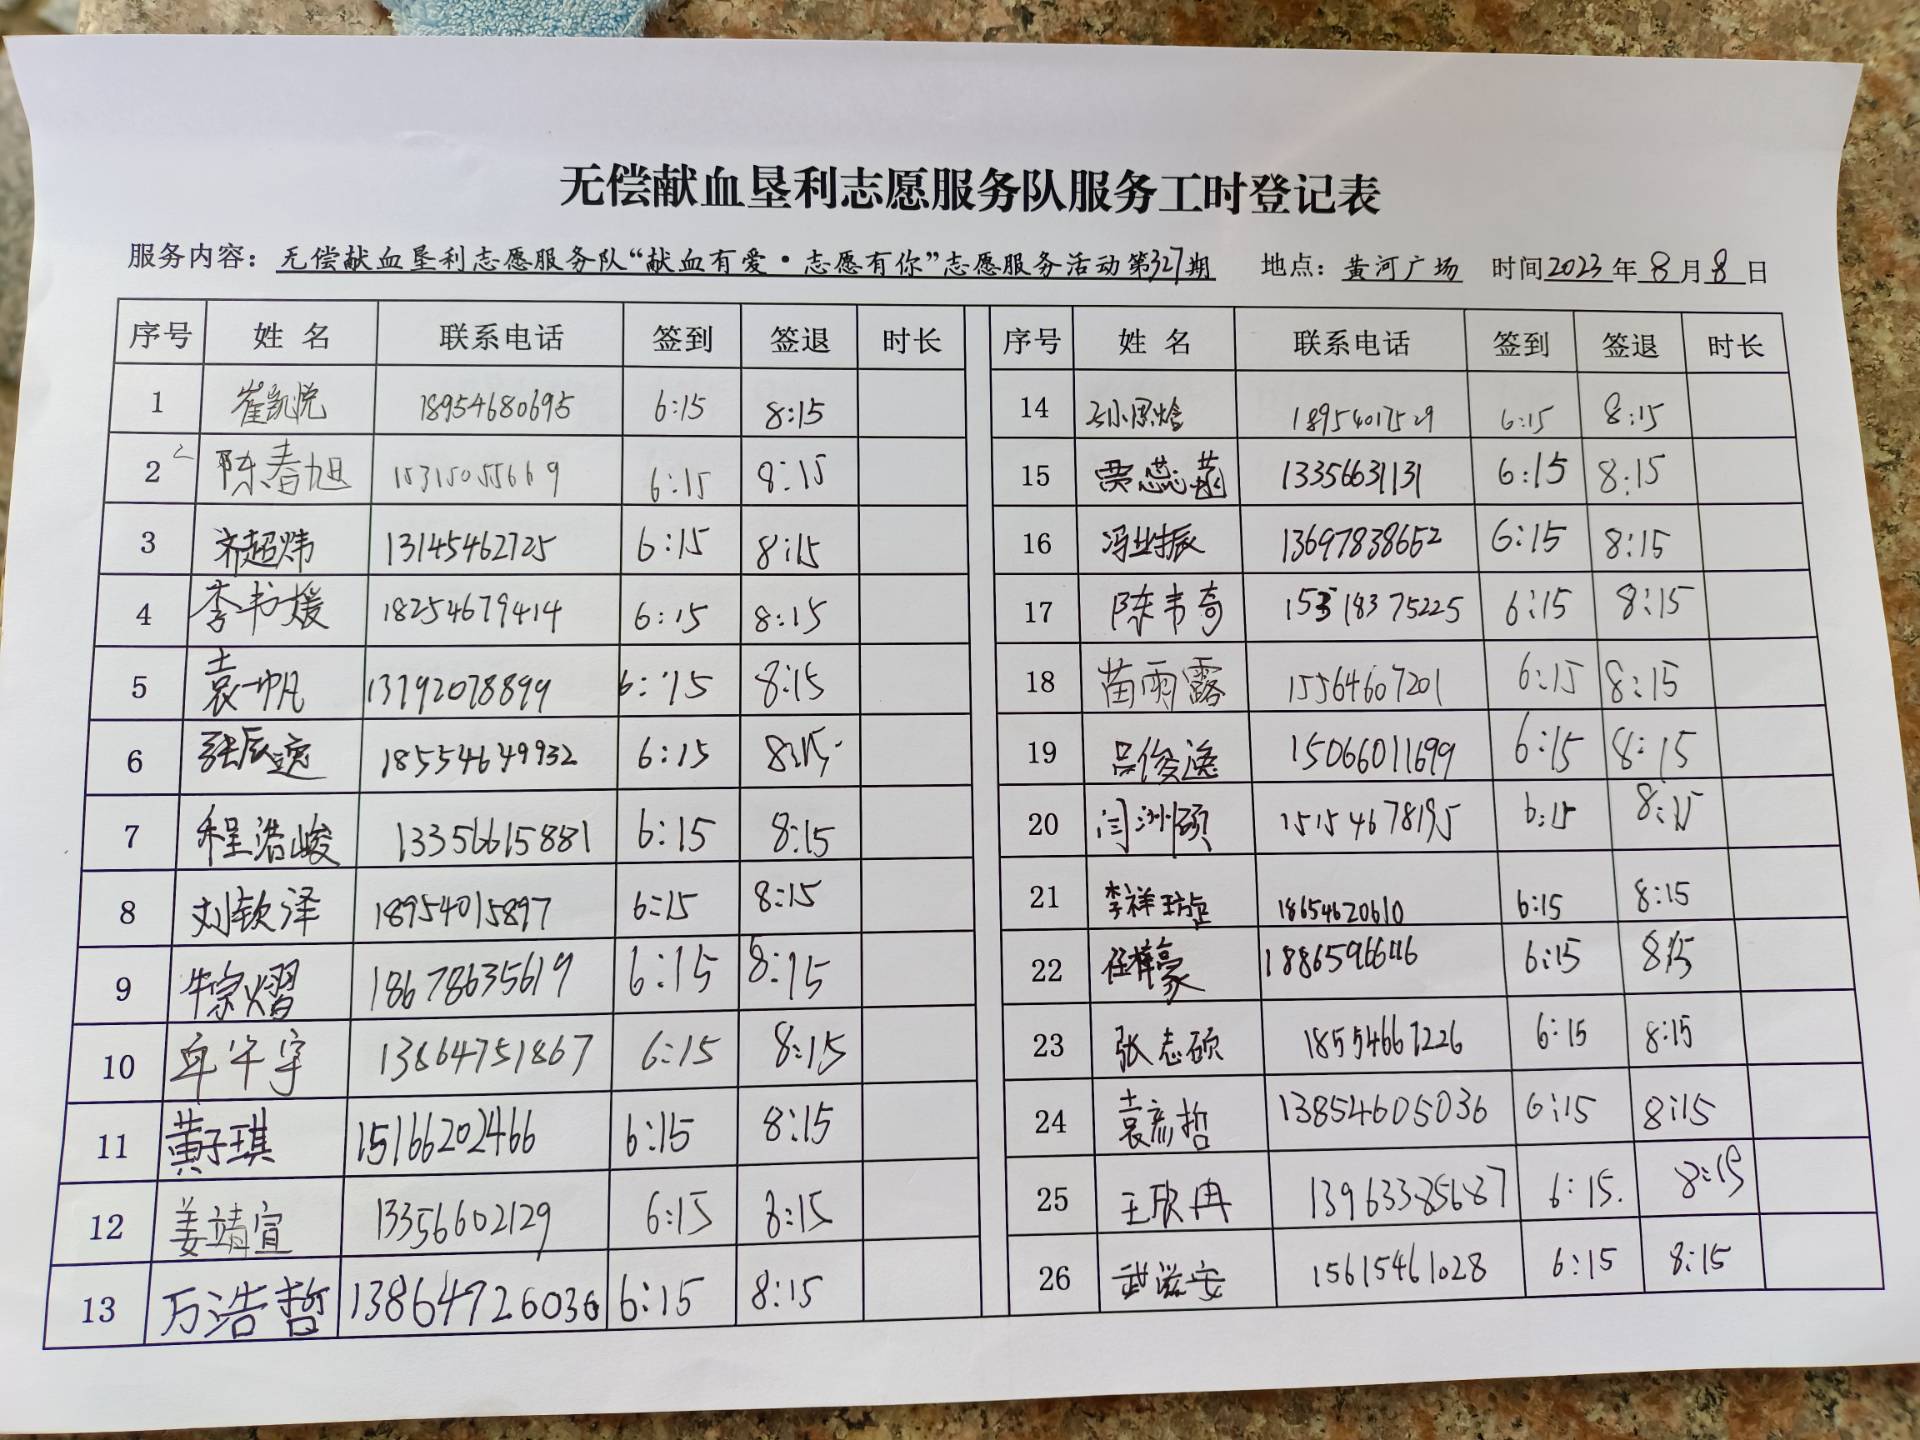 无偿献血垦利志愿服务队服务工时登记表
服务内容：无偿献血垦利志愿服务队“献血有爱·志愿有你”志愿服务活动第327期 地点：黄河广场 时间2023年8月8日
序号 姓名 联系电话 签到 签退 时长 序号 姓名 联系电话 签到 签退 时长
1 崔凯悦 18954680695 6:15 8:15 14 18954017529 6:15 8:15
2 陈春旭 15315055669 6:15 8:15 15 贾蕊菡 13356631131 6:15 8:15
3 齐超炜 13145462725 6:15 8:15 16 冯业振 13697838652 6:15 8:15
4 李书媛 18254679414 6:15 8:15 17 陈韦奇 6:15 8:15
5 袁一帆 13792078899 6:15 8:15 18 苗雨露 15564607201 6:15 8:15
6 张辰逸 18554649932 6:15 8:15 19 吕俊逸 15066011699 6:15 8:15
7 程浩峻 13356615881 6:15 8:15 20 闫洲硕 15154678195 6:15 8:15
8 刘钦泽 18954015897 6:15 8:15 21 李祥琁 18654620610 6:15 8:15
9 牛宗熠 18678635619 6:15 8:15 22 任梓豪 6:15 8:15
10 13864751867 6:15 8:15 23 张志硕 18554667226 6:15 8:15
11 黄子琪 15166202466 6:15 8:15 24 袁彪哲 13854605036 6:15 8:15
12 姜靖宜 13356602129 6:15 8:15 25 王欣冉 13963385687 6:15 8:15
13 万浩哲 13864726036 6:15 8:15 26 武滋安 15615461028 6:15 8:15